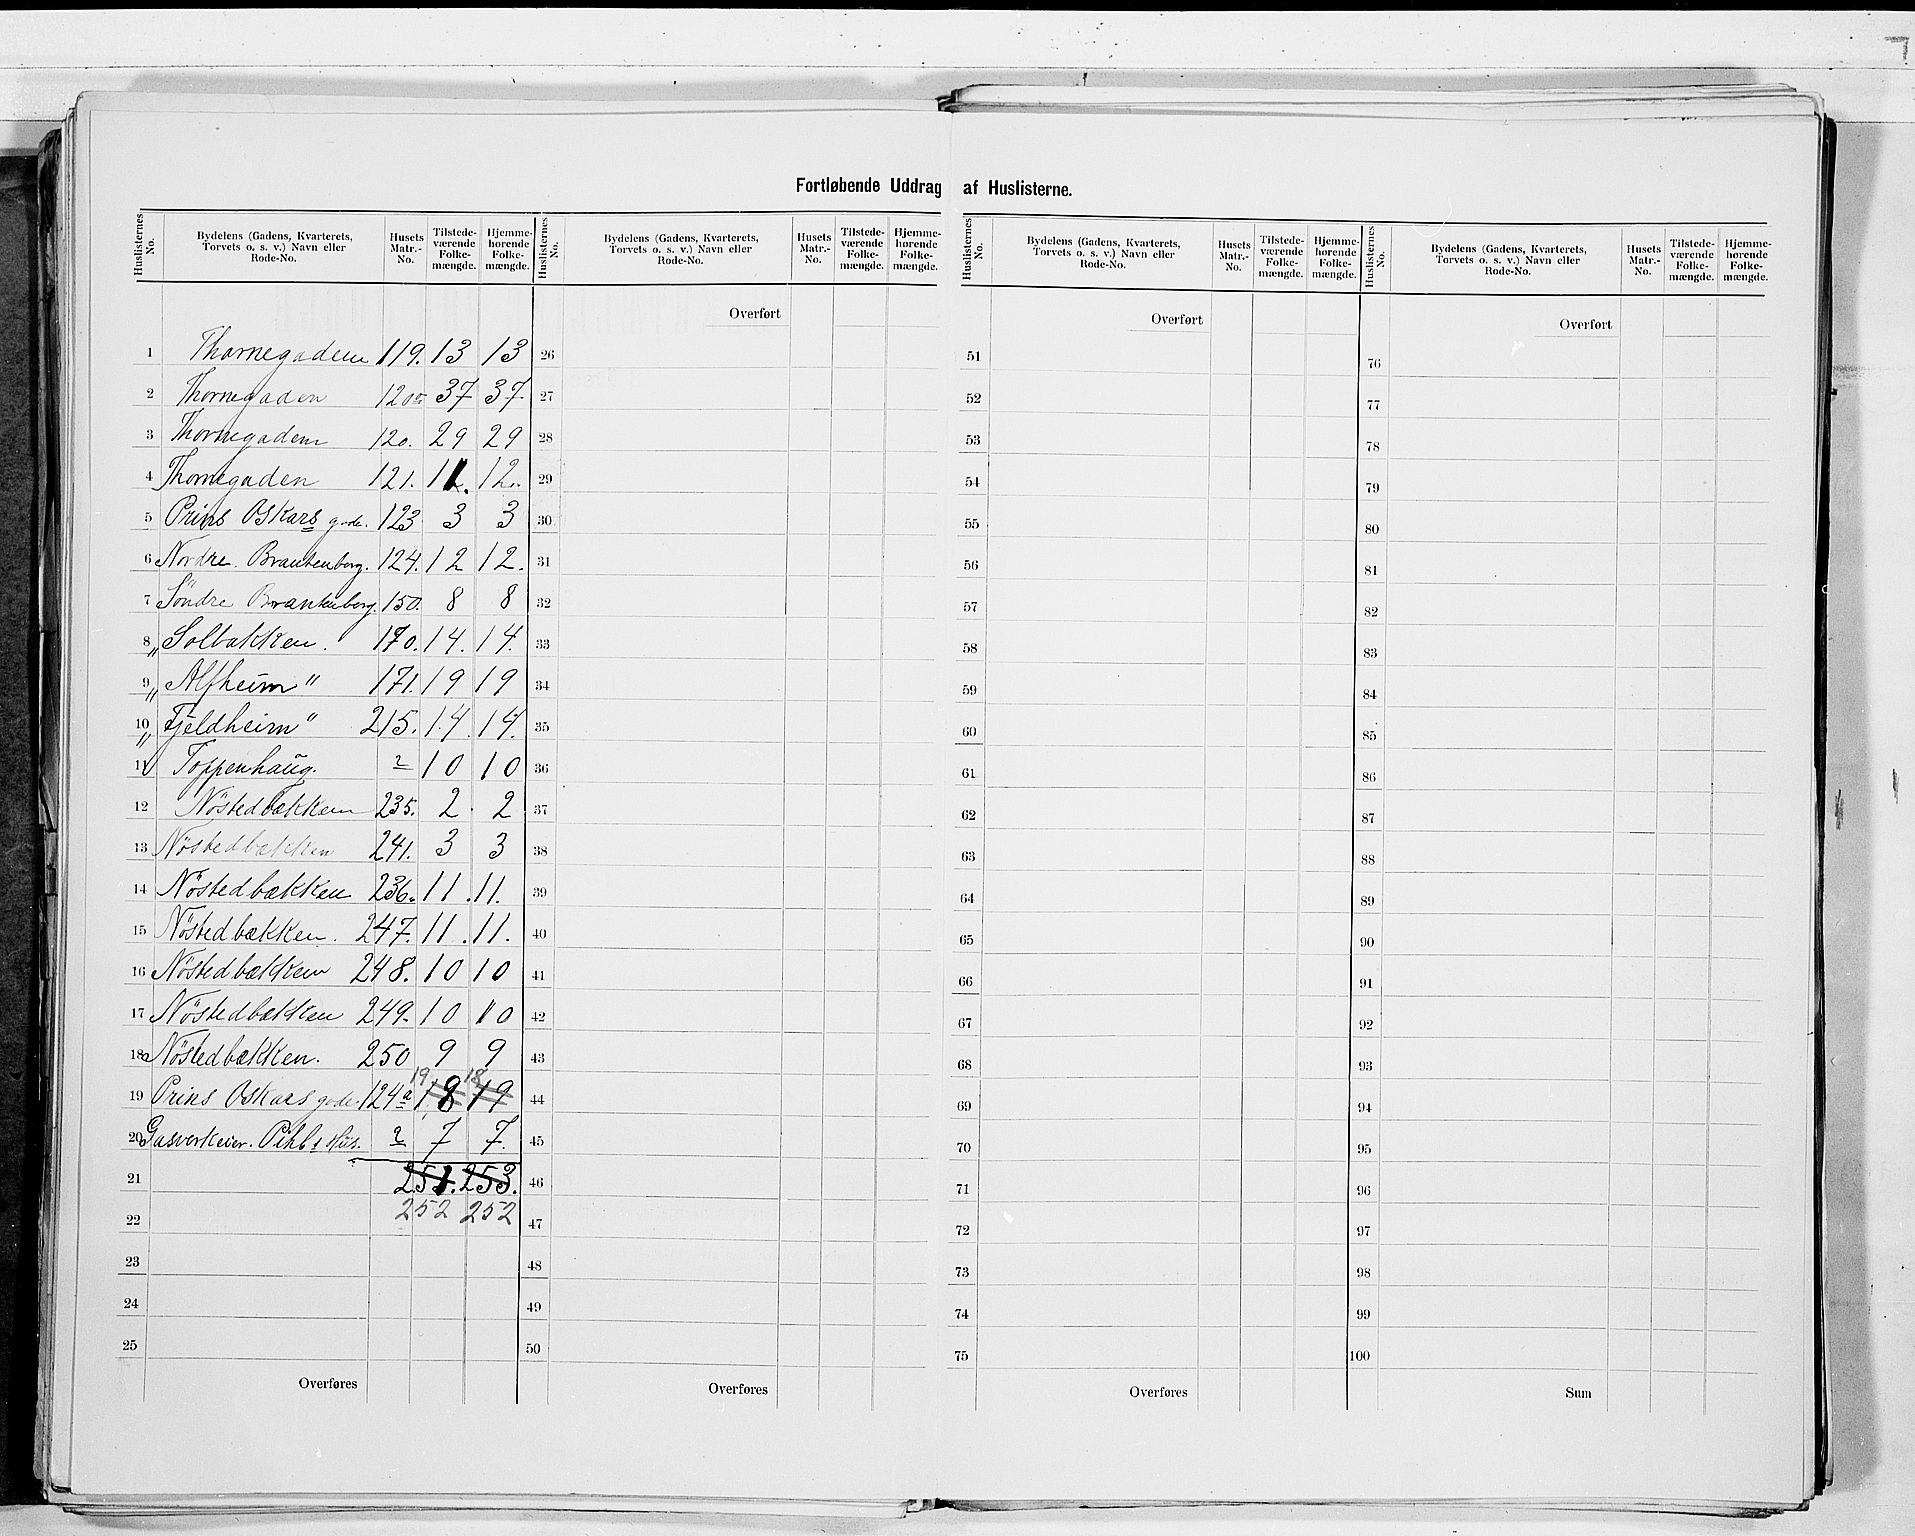 Fortløbende Uddrag af Huslisterne.
Huslisternes No. Bydelens (Gadens, Kvarterets, Torvets o. s. v.) Navn eller Rode-No. Husets Matr.-No. Tilstedeværende Folkemængde. Hjemmehørende Folkemængde.
Huslisternes No. Bydelens (Gadens, Kvarterets, Torvets o. s. v.) Navn eller Rode-No. Husets Matr.-No. Tilstedeværende Folkemængde. Hjemmehørende Folkemængde.
Huslisternes No. Bydelens (Gadens, Kvarterets, Torvets o. s. v.) Navn eller Rode-No. Husets Matr.-No. Tilstedeværende Folkemængde. Hjemmehørende Folkemængde.
Huslisternes No. Bydelens (Gadens, Kvarterets, Torvets o. s. v.) Navn eller Rode-No. Husets Matr.-No. Tilstedeværende Folkemængde. Hjemmehørende Folkemængde.
Overført Overført Overført
1 Thornegaden 119. 13 13 26 51 76
2 Thornegaden 120 37 37 27 52 77
3 Thornegaden 120. 29 29 28 53 78
4 Thornegaden 121. 12. 29 54 79
5 Prins Oskars gade. 123 3 3 30 55 80
6 Nordre Brantenberg. 124. 12 12. 31 56 81
7 Söndre Brantenberg. 150. 8 8 32 57 82
8 „ Solbakken. 170. 14. 14. 33 58 83
9 „ Alfheim " 171. 19 19 34 59 84
10 „ Fjeldheim " 215. 14. 14. 35 60 85
11 Toppenhaug. 10 10 36 61 86
12 Nöstedbækken 235. 2. 2 37 62 87
13 Nöstedbækken 241. 3 3 38 63 88
14 Nöstedbækken 236. 11. 11. 39 64 89
15 Nöstedbækken. 247. 11. 11. 40 65 90
16 Nöstedbækken 248. 10 10 41 66 91
17 Nöstedbækken 249. 10 10 42 67 92
18 Nöstedbækken. 250 9 9 43 68 93
19 18
19 Prins Oskars gade. 124a 18 19 44 69 94
20 Gasverkeier. Pihls Hus. 7 7. 45 70 95
21 251. 253. 46 71 96
22 252 252 47 72 97
23 48 73 98
24 49 74 99
25 50 75 100
Overføres Overføres Overføres Sum